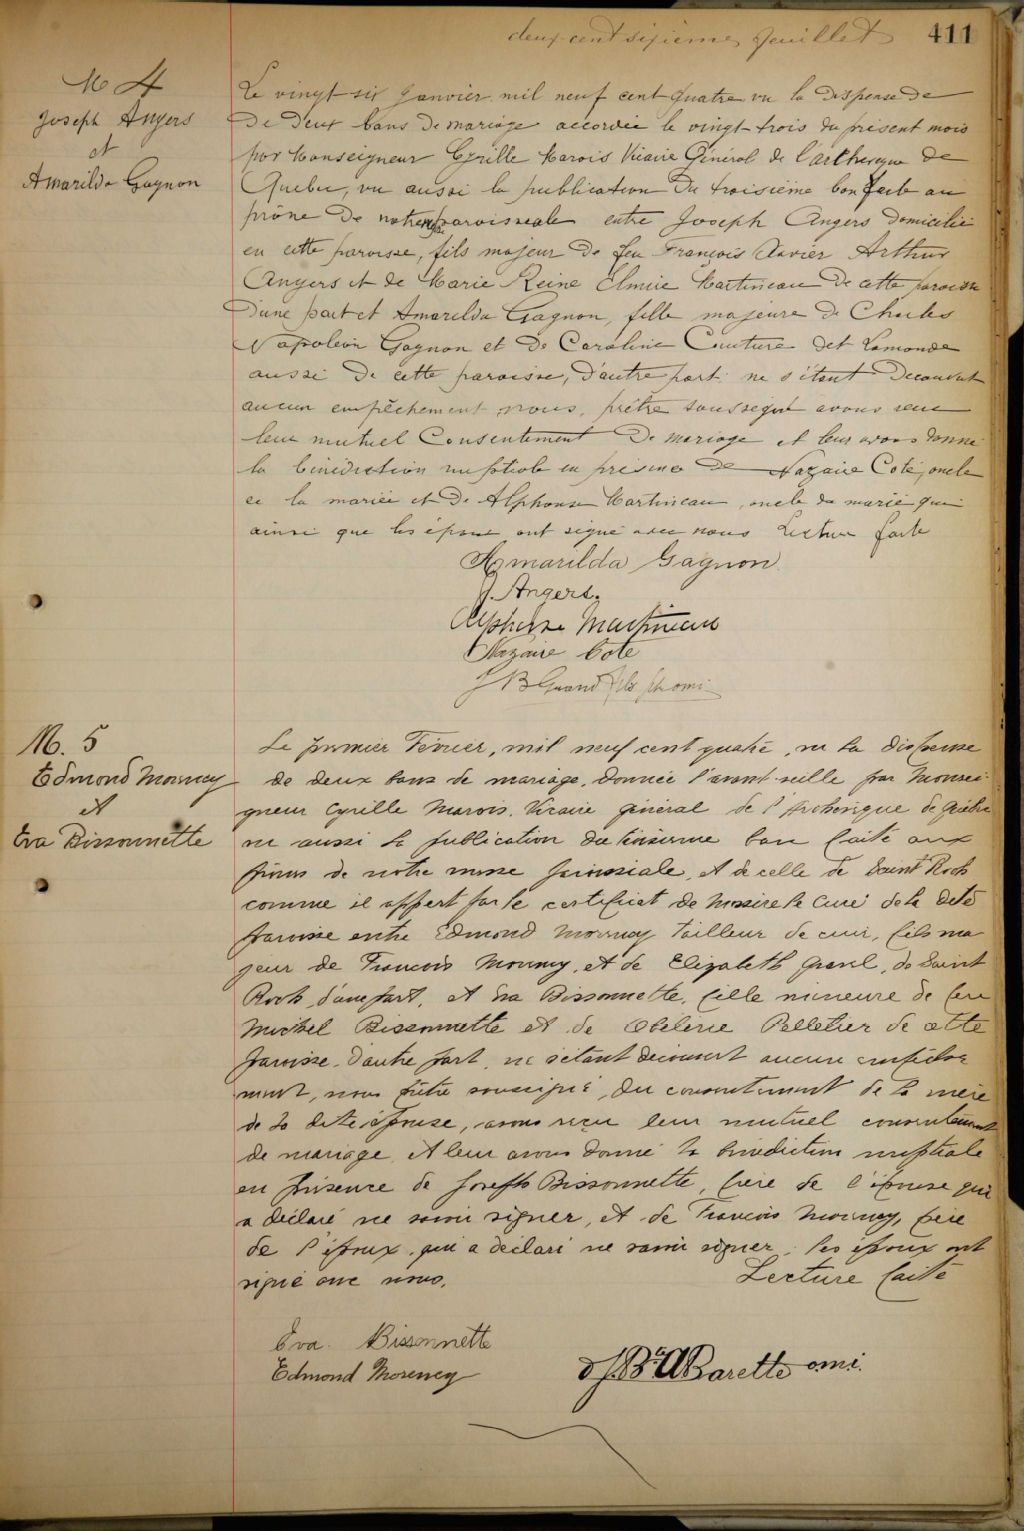 deux-cent sixième feuillet 411
M 4
Joseph Angers
et
Amarilda Gagnon
Le vingt six Janvier mil neuf cent quatre vu la dispense de
de deux bans de mariage accordée le vingt-trois du présent mois
par Monseigneur Cyrille Marois Vicaire Général de l'archevêque de
Québec, vu aussi la publication du troisième ban faite au
prône de notre messe paroissiale entre Joseph Angers domicilié
en cette paroisse, fils majeur de feu François Xavier Arthur
Angers et de Marie Reine Elmire Martineau de cette paroisse
d'une part et Amarilda Gagnon, fille majeure de Charles
Napoléon Gagnon et de Caroline Couture dit Lamonde
aussi de cette paroisse, d'autre part ne s'étant découvert
aucun empêchement, nous, prêtre soussigné avons reçu
leur mutuel Consentement de mariage et leur avons donné
la bénédiction nuptiale en présence de Nazaire Coté, oncle
de la mariée et de Alphonse Martineau, oncle du marié qui
ainsi que les époux ont signé avec nous Lecture faite
Amarilda Gagnon
J. Angers.
Alphonse Martineau
Nazaire Cote
J B Guand omi
M. 5
Edmond Morency
et
Eva Bissonnette
Le premier Février, mil neuf cent quatre, vu la dispense
de deux bans de mariage, donnée l'avant-veille par Monsei-
gneur Cyrille Marois, Vicaire général de l'Archevêque de Québec
vu aussi la publication du troisième ban faite aux
prônes de notre messe paroissiale, et de celle de Saint Roch
comme il appert par le certificat de Messire le Curé de la dite
paroisse entre Edmond Morency tailleur de cuir, fils ma
jeur de François Morency, et de Elizabeth Gravel, de Saint
Roch, d'une part, et Eva Bissonnette, fille mineure de feu
Michel Bissonnette et de Obéline Pelletier de cette
paroisse, d'autre part, ne s'étant découvert aucun empêche
ment, nous prêtre soussigné, du consentement de la mère
de la dite épouse, avons reçu leur mutuel consentement
de mariage et leur avons donné la bénédiction nuptiale
en présence de Joseph Bissonnette, frère de l'épouse qui
a déclaré ne savoir signer, et de François Morency, père
de l'époux, qui a déclaré ne savoir signer. les époux ont
signé avec nous. Lecture faite
Eva Bissonnette
Edmond Morency
J. Bte A Barette o.m.i.